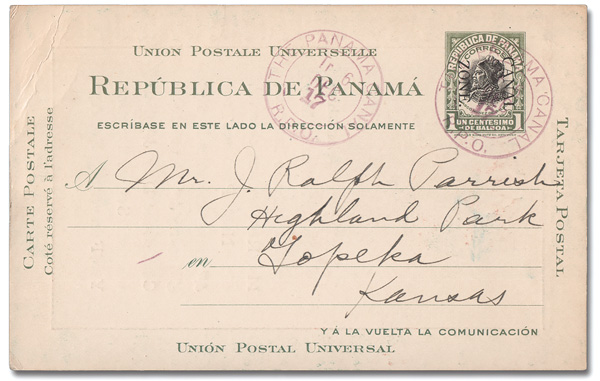 UNION POSTALE UNIVERSELLE
REPÚBLICA DE PANAMÁ
ESCRÍBASE EN ESTE LADO LA DIRECCIÓN SOLAMENTE
REPUBLICA DE PANAMA
CORREOS
CANAL
ZONE
1 UN CENTESIMO 1
DE BALBOA
THE PANAMA CANAL
17
R.P.O.
PANAMA CANAL
R.P.O.
CARTE POSTALE
Coté réservé à l'adresse
TARJETA POSTAL
A Mr. J. Ralph Parrish
Highland Park
en Topeka
Kansas
Y Á LA VUELTA LA COMUNICACIÓN
UNIÓN POSTAL UNIVERSAL